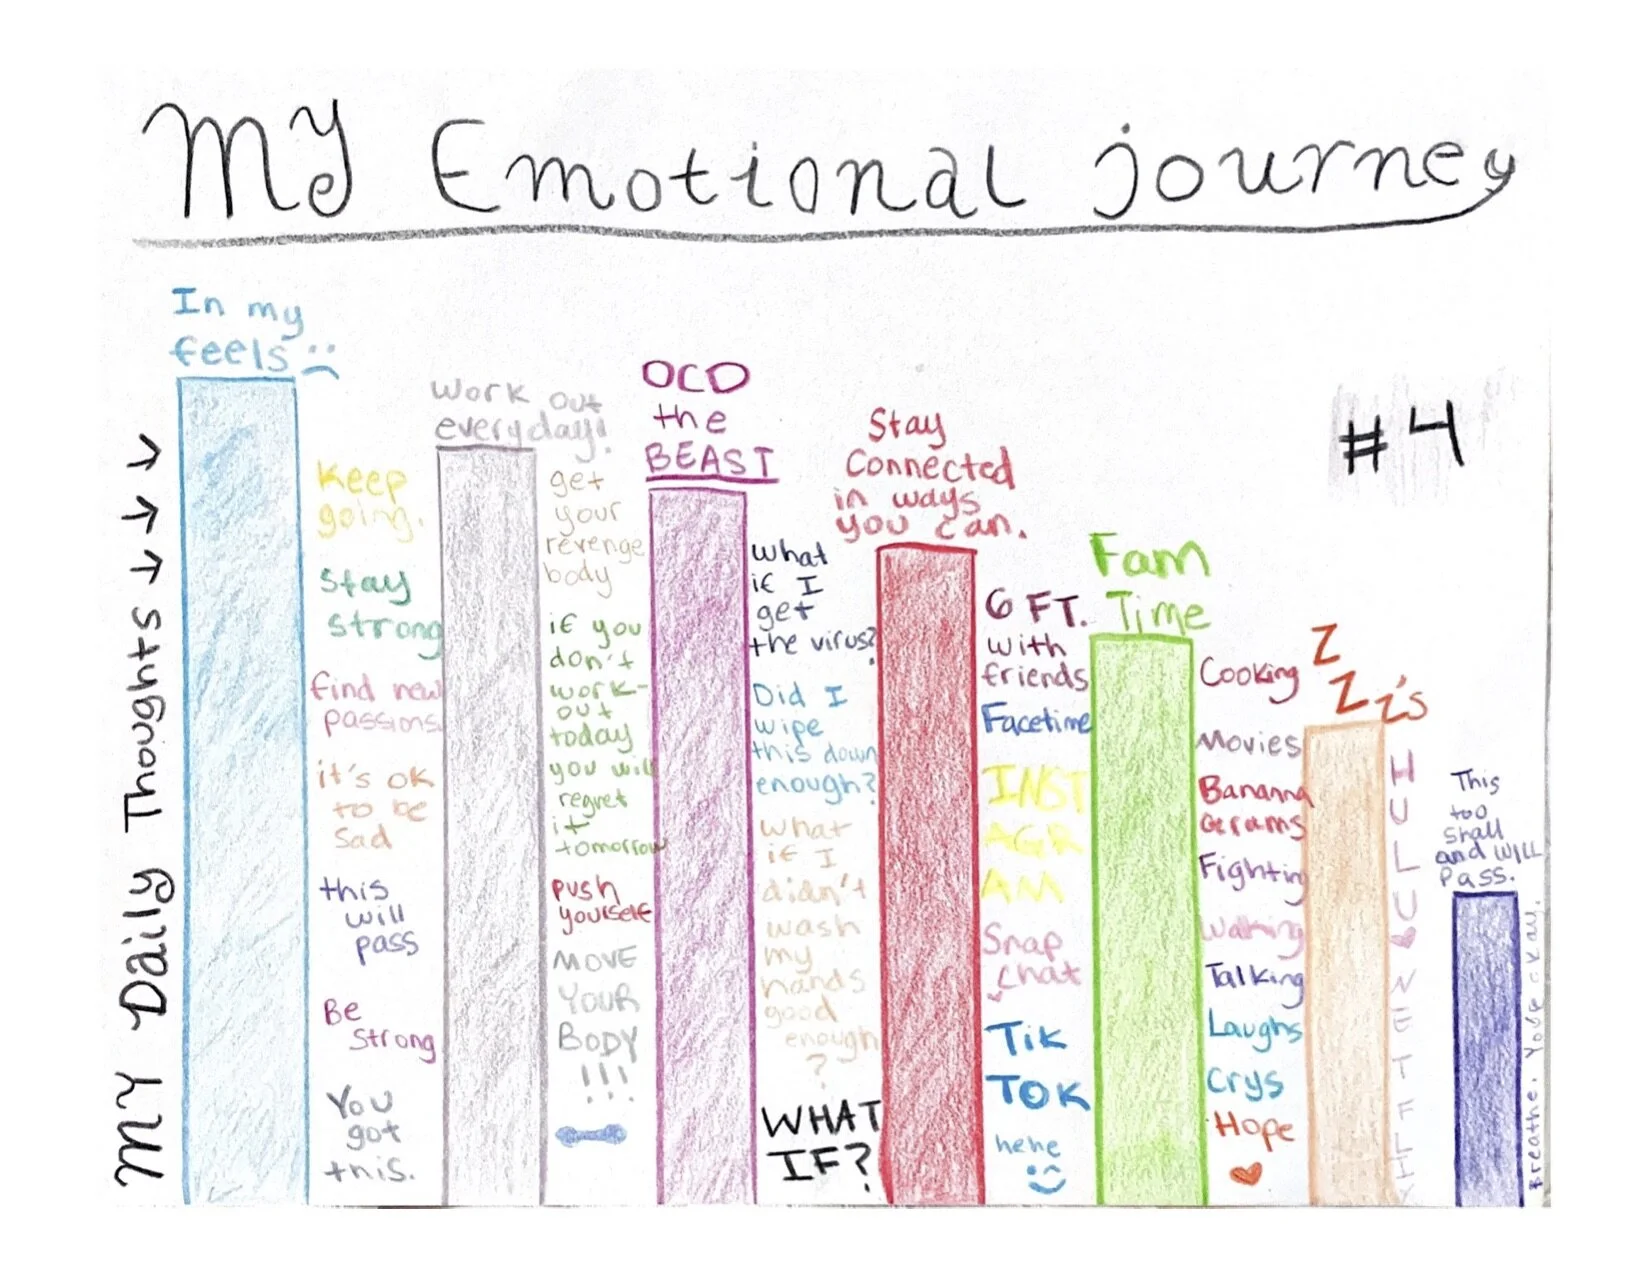 MY Emotional journey
MY Daily Thoughts → → →
In my
feels
Keep
going.
Stay
strong
find new
passions
it's ok
to be
sad
this
will
pass
Be
strong
You
got
this.
Work out
everyday!
get
your
revenge
body
if you
don't
work-
out
today
you will
regret
it
tomorrow
push
yourself
MOVE
YOUR
BODY
!!!
OCD
the
BEAST
what
if I
get
the virus?
Did I
wipe
this down
enough?
what
if I
didn't
wash
my
hands
good
enough
?
WHAT
IF?
Stay
Connected
in ways
you can.
6 FT.
with
friends
Facetime
INST
AGR
AM
Snap
chat
Tik
TOK
hehe
Fam
Time
Cooking
Movies
Bananna
Grams
Fighting
Walking
Talking
Laughs
Crys
Hope
#4
Z
Z
Z's
HULU
NETFLIX
This
too
shall
and WILL
pass.
Breathe.